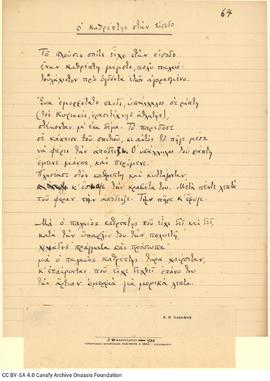 64
Ὁ καθρέπτης στὴν εἴσοδο
Τὸ πλούσιο σπίτι εἶχε στὴν εἴσοδο
ἕναν καθρέπτη μέγιστο, πολὺ παλαιό·
τουλάχιστον πρὸ ὀγδόντα ἐτῶν ἀγορασμένο.
Ἕνα ἐμορφότατο παιδί, ὑπάλληλος σὲ ράπτη
(τὲς Κυριακές, ἐρασιτέχνης ἀθλητής),
στέκονταν μ' ἕνα δέμα. Τὸ παρέδοσε
σὲ κάποιον τοῦ σπιτιοῦ, κι αὐτὸς τὸ πῆγε μέσα
νὰ φέρει τὴν ἀπόδειξι. Ὁ ὑπάλληλος τοῦ ράπτη
ἔμεινε μόνος, καὶ περίμενε.
Πλησίασε στὸν καθρέπτη καὶ κυττάζονταν,
κ' ἔσιαζε τὴν κραβάτα του. Μετὰ πέντε λεπτὰ
τοῦ φέραν τὴν ἀπόδειξι. Τὴν πῆρε κ' ἔφυγε.
Μὰ ὁ παλαιὸς καθρέπτης ποὺ εἶχε δεῖ καὶ δεῖ,
κατὰ τὴν ὕπαρξίν του τὴν πολυετῆ,
χιλιάδες πράγματα καὶ πρόσωπα·
μὰ ὁ παλαιὸς καθρέπτης τώρα χαίρονταν,
κ' ἐπαίρονταν ποὺ εἶχε δεχθεῖ ἐπάνω του
τὴν ἄρτιαν ἐμορφιὰ γιὰ μερικὰ λεπτά.
Κ. Π. ΚΑΒΑΦΗΣ
CC BY-SA 4.0 Cavafy Archive Onassis Foundation